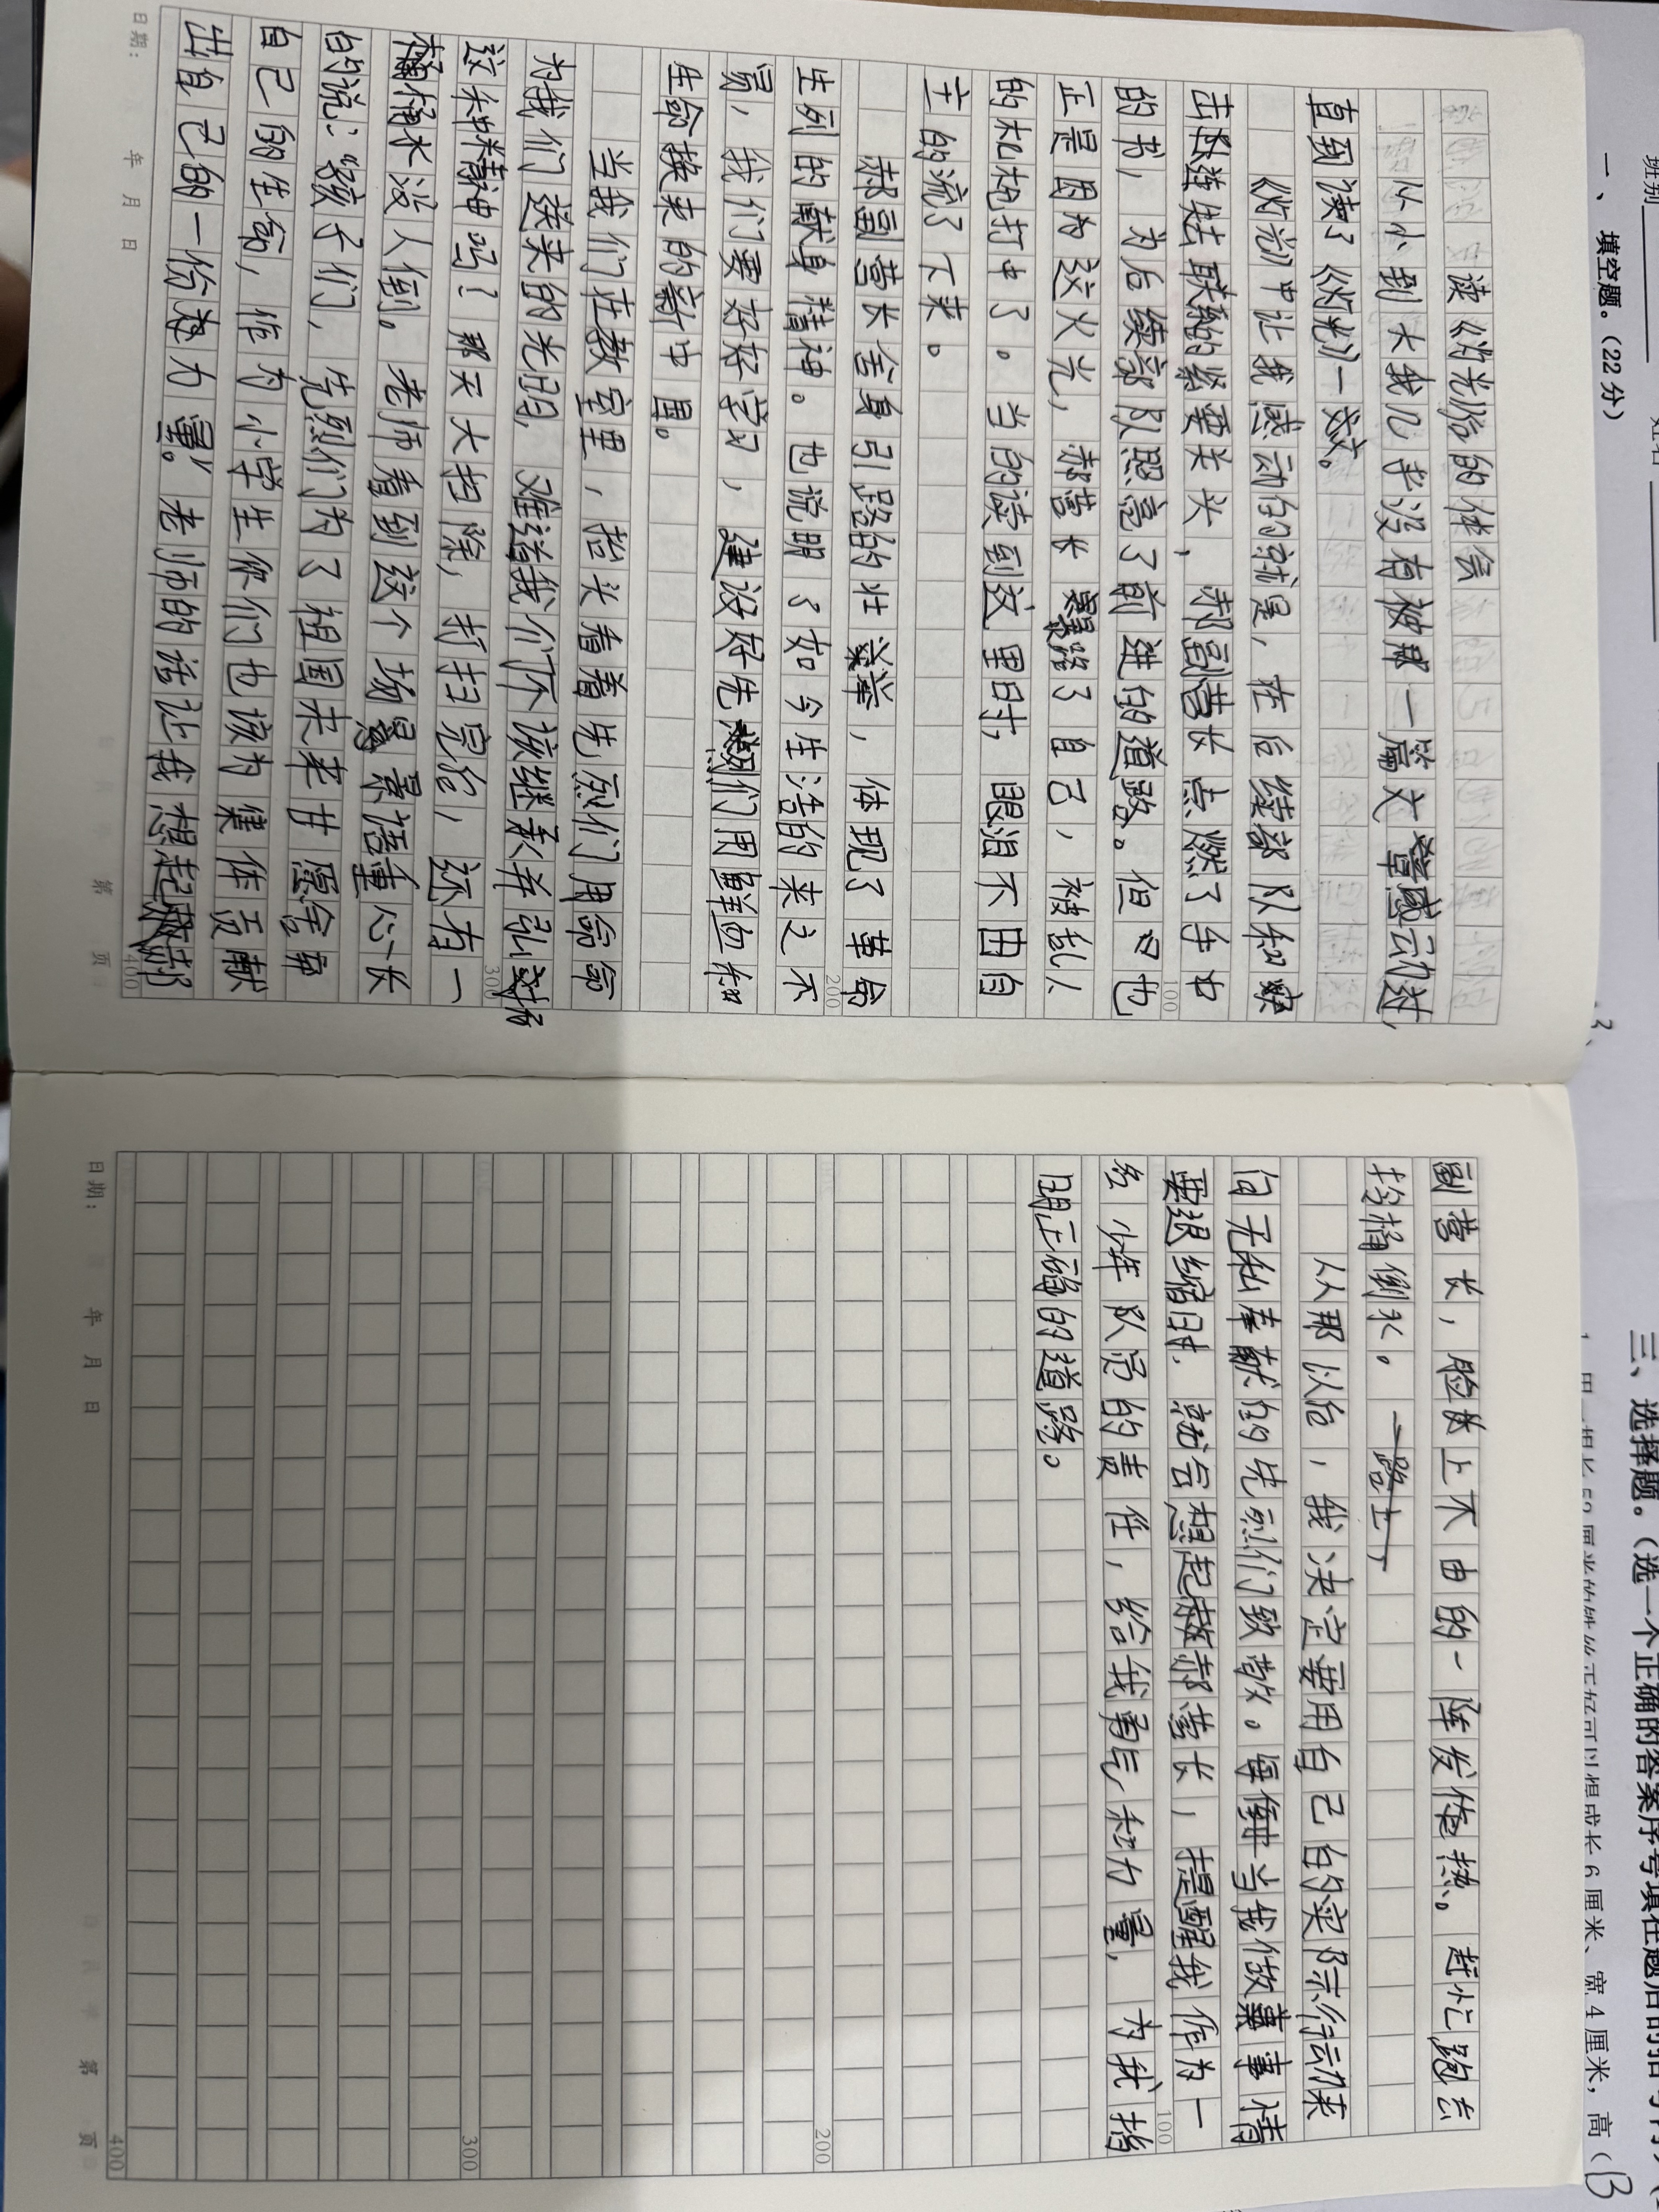 读《灯光》后的体会
从小到大我几乎没有被那一篇文章感动过,
直到读了《灯光》一文。
《灯光》中让我感动的就是,在后续部队和突
击连失去联系的紧要关头,郝副营长点燃了手中
的书,为后续部队照亮了前进的道路。但也
正是因为这火光,郝营长暴露了自己,被乱人
的机枪打中了。当的读到这里时,眼泪不由自
主的流了下来。
郝副营长舍身引路的壮举,体现了革命
先烈的献身精神。也说明了如今生活的来之不
易,我们要好好学习,建设好先烈们用鲜血和
生命换来的新中国。
当我们在教室里,抬头看着先烈们用命
为我们送来的光明,难道我们不该继承并弘扬
这种精神吗?那天大扫除,打扫完后,还有一
桶脏水没人倒。老师看到这个场景,语重心长
的说:“孩子们,先烈们为了祖国未来甘愿舍弃
自己的生命,作为小学生你们也该为集体贡献
出自己的一份力量。”老师的话让我想起郝
副营长,脸上不由的一阵发热。赶忙跑去
拎桶倒水。
从那以后,我决定要用自己的实际行动来
向无私奉献的先烈们致敬。每当我做事情
要退缩时,就会想起郝营长,提醒我作为一
名少年队员的责任,给我勇气和力量,为我指
明正确的道路。
日期: 年 月 日 第 页
100
200
300
400
日期: 年 月 日 第 页
100
200
300
400
班别 姓名
一、填空题。(22分)
三、选择题。(选一个正确的答案序号填在题后的括号内)
厘米、宽4厘米,高(
B